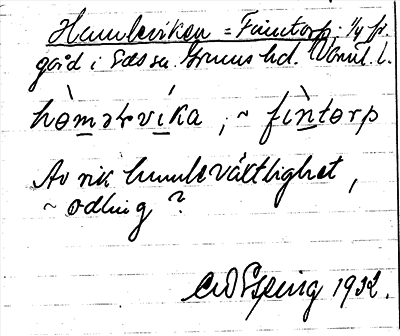 Humleviken = Finntorp. 1/4 fr.
gård i Eds sn. Grums hd. Värml. l.
hòmətvika, ~ fintorp
Av rik humleväxtlighet,
~ odling?
CW Esping 1932.